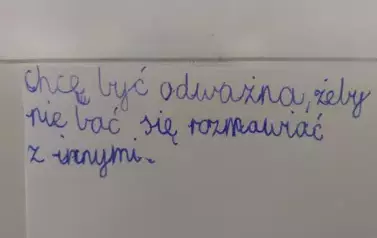 chcę być odważna, żeby
nie bać się rozmawiać
z innymi.